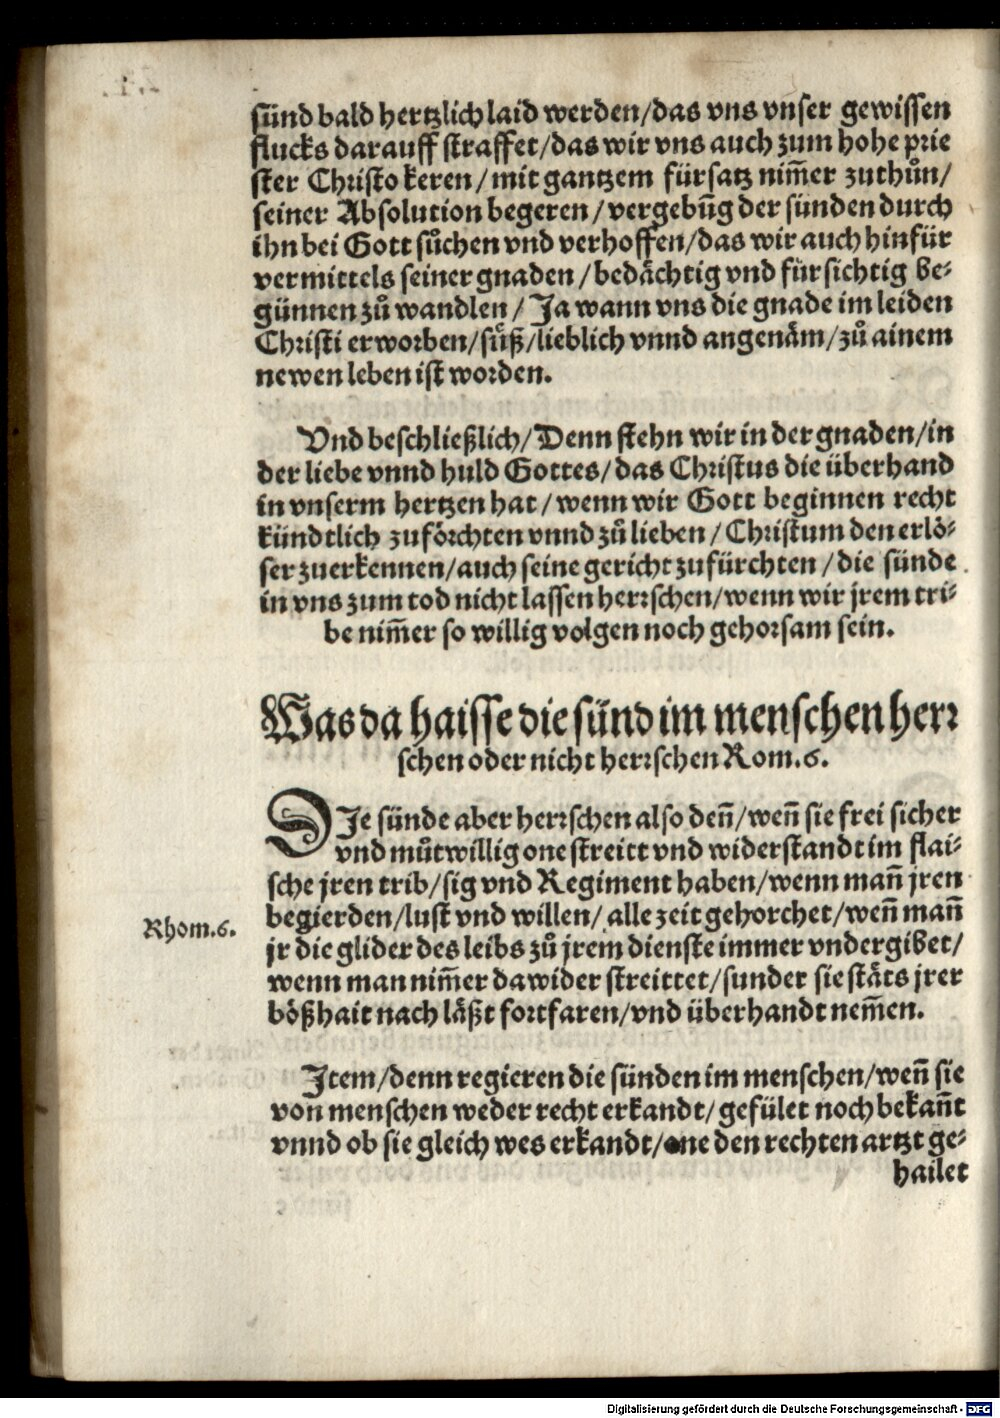 sünd bald hertzlich laid werden/das vns vnser gewissen
flucks darauff straffet/das wir vns auch zum hohe prie
ster Christo keren/mit gantzem fürsatz nim̃er zuthůn/
seiner Absolution begeren/vergebũg der sünden durch
ihn bei Gott sůchen vnd verhoffen/das wir auch hinfür
vermittels seiner gnaden/bedächtig vnd fürsichtig be-
günnen zů wandlen/Ja wann vns die gnade im leiden
Christi erworben/sůß/lieblich vnnd angenäm/zů ainem
newen leben ist worden.
Vnd beschließlich/Denn stehn wir in der gnaden/in
der liebe vnnd huld Gottes/das Christus die überhand
in vnserm hertzen hat/wenn wir Gott beginnen recht
kündtlich zuförchten vnnd zů lieben/Christum den erlö-
ser zuerkennen/auch seine gericht zufürchten/die sünde
in vns zum tod nicht lassen herrschen/wenn wir jrem tri-
be nim̃er so willig volgen noch gehorsam sein.
Was da haisse die sünd im menschen herr
schen oder nicht herrschen Rom.6.
DIe sünde aber herrschen also den̄/wen̄ sie frei sicher
vnd můtwillig one streitt vnd widerstandt im flai-
sche jren trib/sig vnd Regiment haben/wenn man̄ jren
begierden/lust vnd willen/alle zeit gehorchet/wen̄ man̄
Rhom.6.
jr die glider des leibs zů jrem dienste immer vndergibet/
wenn man nim̃er dawider streittet/sunder sie stäts jrer
bößhait nach läßt fortfaren/vnd überhandt nem̃en.
Item/denn regieren die sünden im menschen/wen̄ sie
von menschen weder recht erkandt/gefület noch bekan̄t
vnnd ob sie gleich wes erkandt/one den rechten artzt ge-
hailet
Digitalisierung gefördert durch die Deutsche Forschungsgemeinschaft - DFG